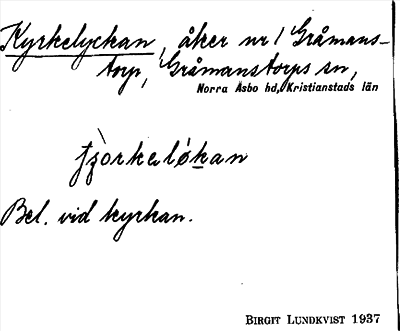 Kyrkelyckan, åker nr 1 Gråmans-
torp, Gråmanstorps sn,
Norra Åsbo hd, Kristianstads län
Bel. vid kyrkan.
BIRGIT LUNDKVIST 1937